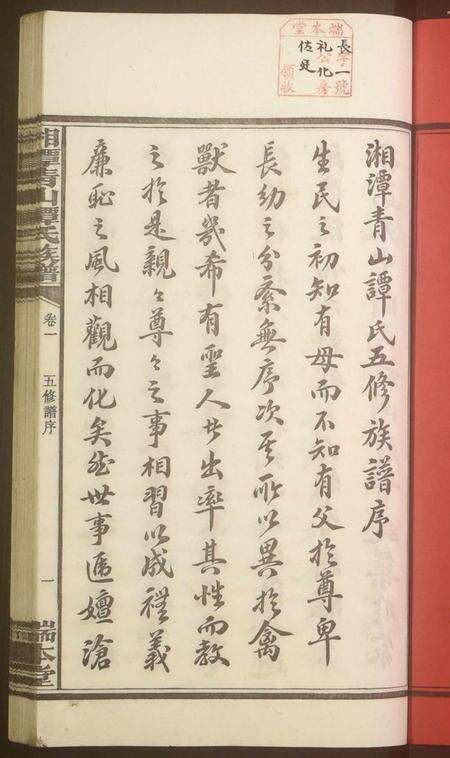 端本堂
長字一號
礼公化彥
佐廷
領收
湘潭青山譚氏五修族譜序
生民之初知有母而不知有父於尊卑
長幼之分紊無序次其所以異於禽
獸者幾希有聖人者出率其性而教
之於是親々尊々之事相習以成禮義
廉恥之風相觀而化矣然世事遞嬗滄
湘潭青山譚氏族譜
卷一
五修譜序
一
端本堂